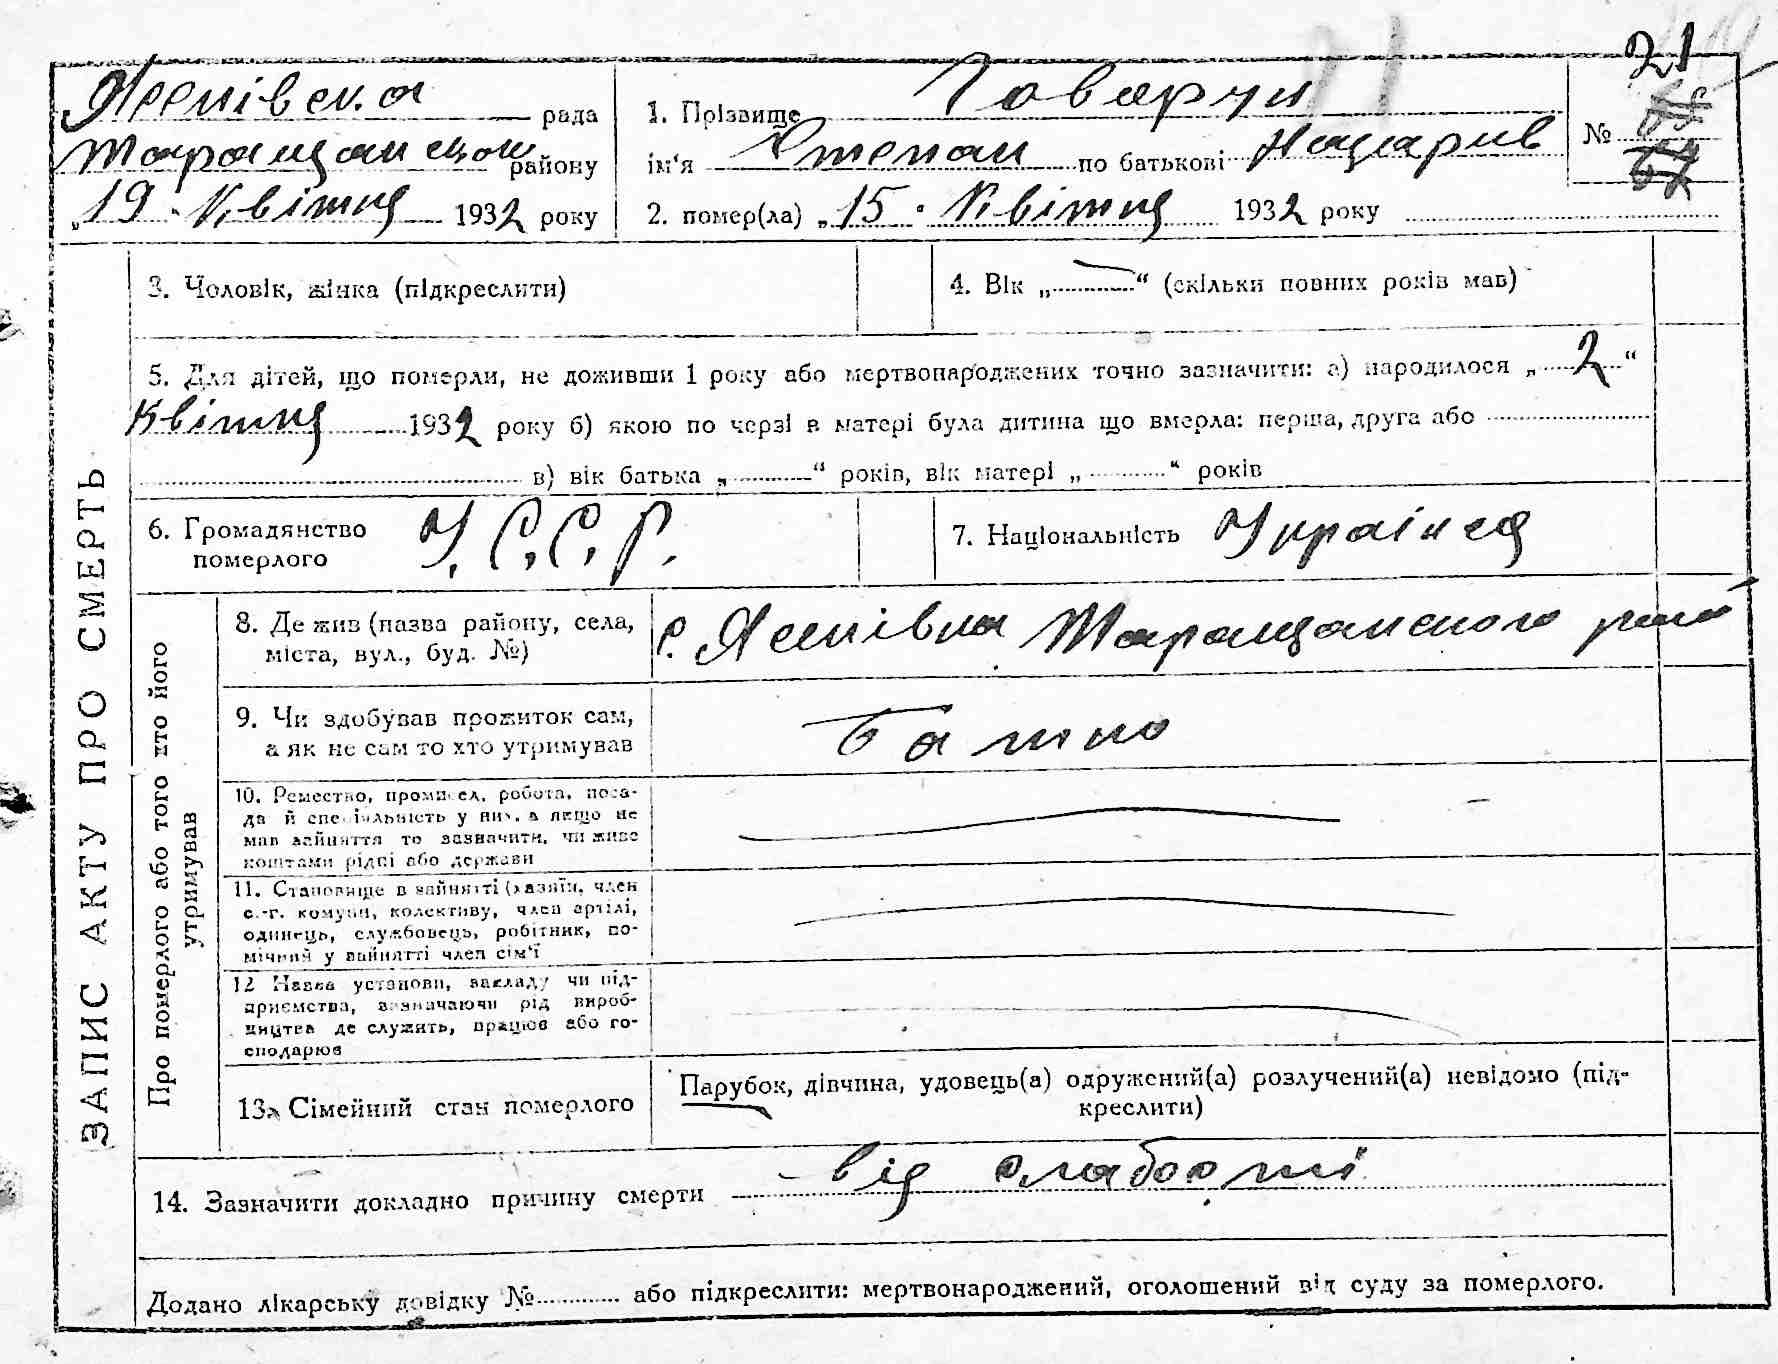 21
Ясенівська рада
Таращанського району
„19“ Квітня 1932 року
1. Прізвище
ім'я Степан по батькові Назарів
№
2. помер(ла) „15“ Квітня 1932 року
3. Чоловік, жінка (підкреслити)
4. Вік „ “ (скільки повних років мав)
5. Для дітей, що померли, не доживши 1 року або мертвонароджених точно зазначити: а) народилося „2“
Квітня 1932 року б) якою по черзі в матері була дитина що вмерла: перша, друга або
в) вік батька „ “ років, вік матері „ “ років
6. Громадянство
померлого
У.С.С.Р.
7. Національність Українец
ЗАПИС АКТУ ПРО СМЕРТЬ
Про померлого або того хто його
утримував
8. Де жив (назва району, села,
міста, вул., буд. №)
с. Ясенівка Таращанського
9. Чи здобував прожиток сам,
а як не сам то хто утримував
Батько
10. Ремество, промисел, робота, поса-
да й спеціяльність у них, а якщо не
мав зайняття то зазначити, чи живе
коштами рідні або держави
11. Становище в зайнятті (хазяїн, член
с.-г. комуни, колективу, член артілі,
одинець, службовець, робітник, по-
мічний у зайнятті член сім'ї
12 Назва установи, закладу чи під-
приємства, зазначаючи рід вироб-
ництва де служить, працює або го-
сподарює
13. Сімейний стан померлого
Парубок, дівчина, удовець(а) одружений(а) розлучений(а) невідомо (під-
креслити)
14. Зазначити докладно причину смерти від слабості
Додано лікарську довідку № або підкреслити: мертвонароджений, оголошений від суду за померлого.